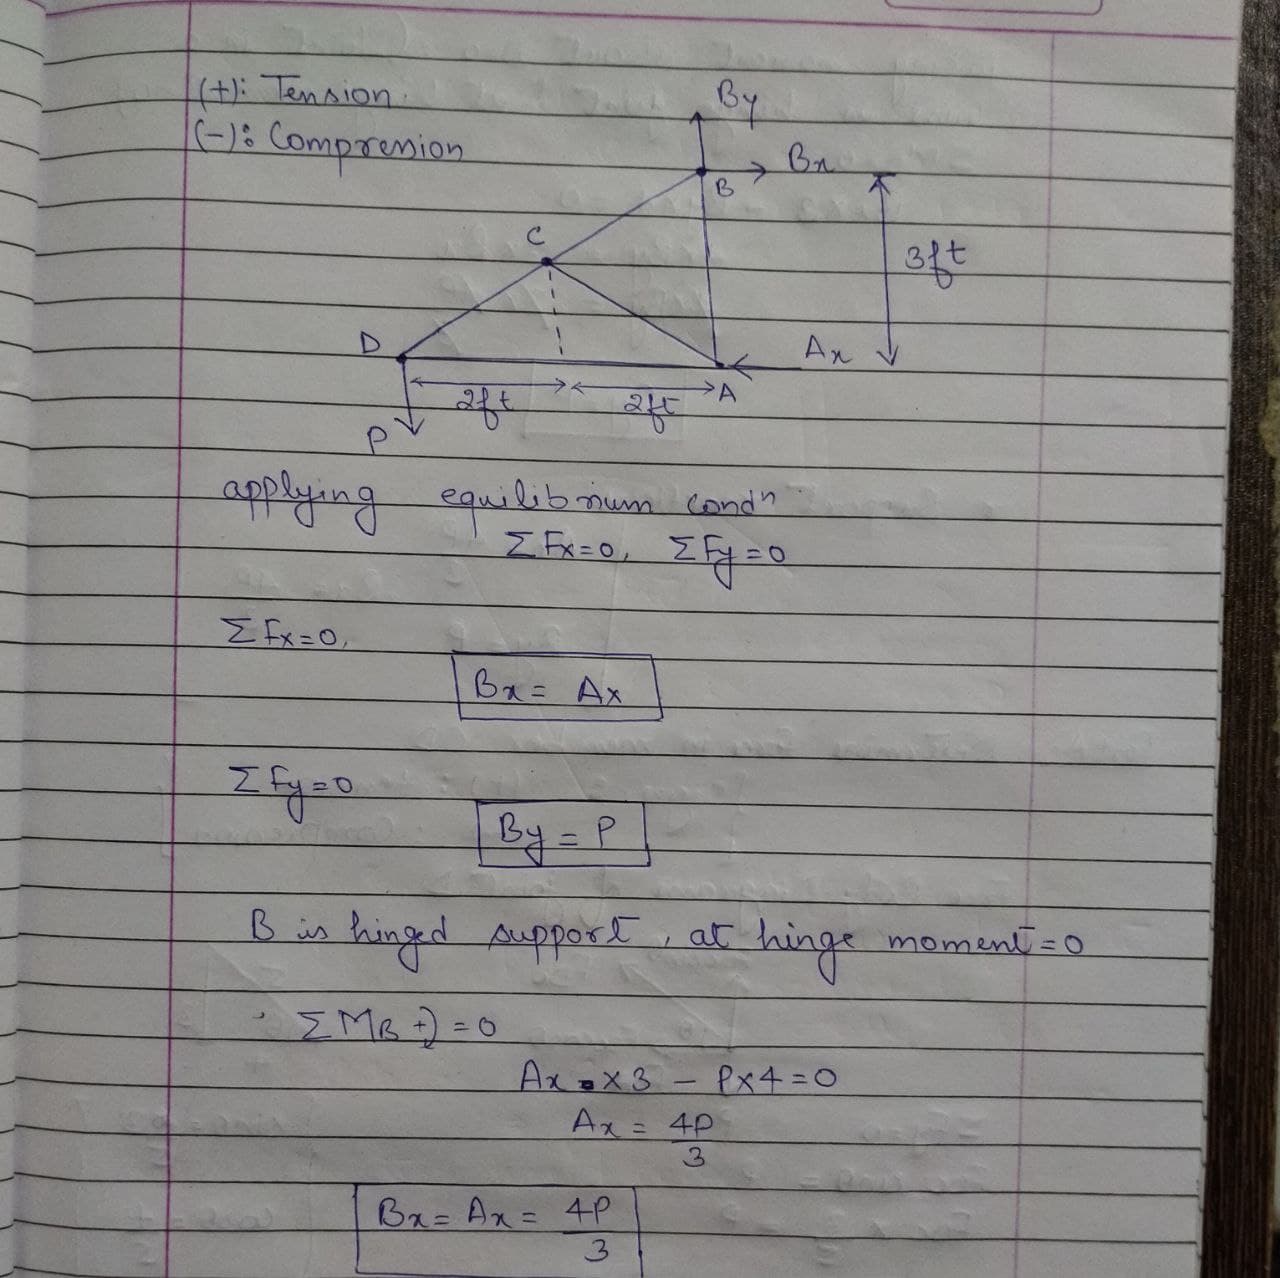 (+): Tension
(-): Compression
By
Bx
B
C
3ft
D
Ax
A
2ft
2ft
P
applying equilibrium condⁿ
ΣFx=0, ΣFy=0
ΣFx=0,
Bx = Ax
ΣFy=0
By = P
B is hinged support, at hinge moment=0
ΣMB +↻ = 0
Ax × 3 - P×4=0
Ax = 4P/3
Bx = Ax = 4P/3